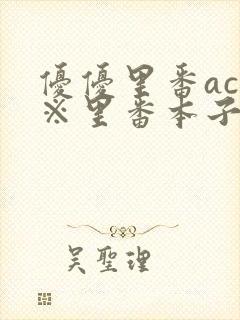 優優里番ac
※里番本子
吴聖理